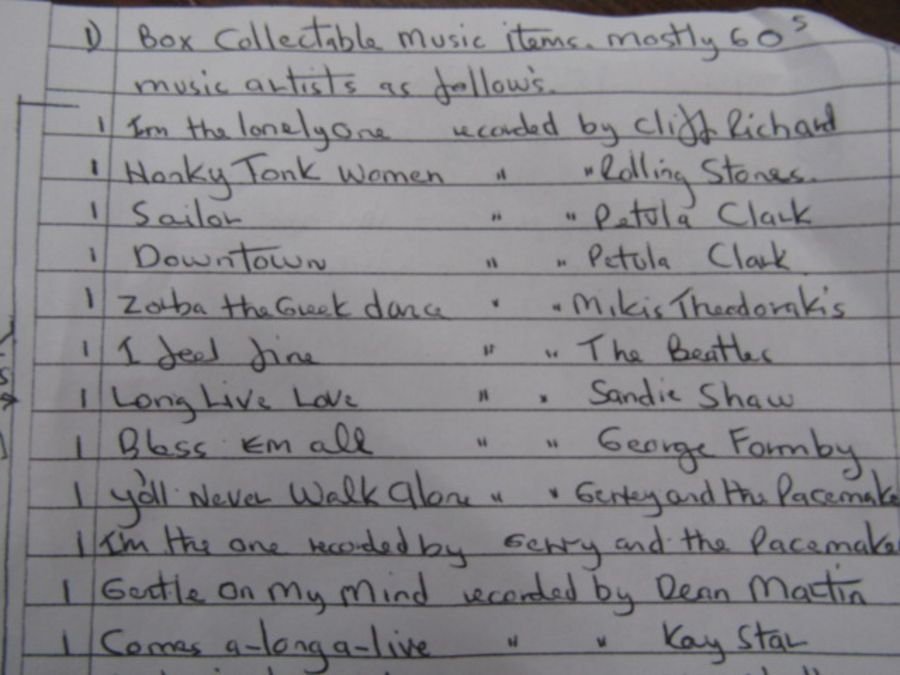 1) Box Collectable music items. mostly 60s
music artists as follow's.
1 I'm the lonely One recorded by Cliff Richard
1 Honky Tonk Women " " Rolling Stones.
1 Sailor " " Petula Clark
1 Downtown " " Petula Clark
1 Zorba the Greek dance " " Mikis Theodorakis
1 I feel fine " " The Beatles
1 Long Live Love " " Sandie Shaw
1 Bless Em all " " George Formby
1 y'oll Never Walk Alone " " Gerrey and the Pacemake
1 I'm the one recorded by Gerry and the Pacemake
1 Gentle On My Mind recorded by Dean Martin
1 Comes a-long-a-live " " Kay Star